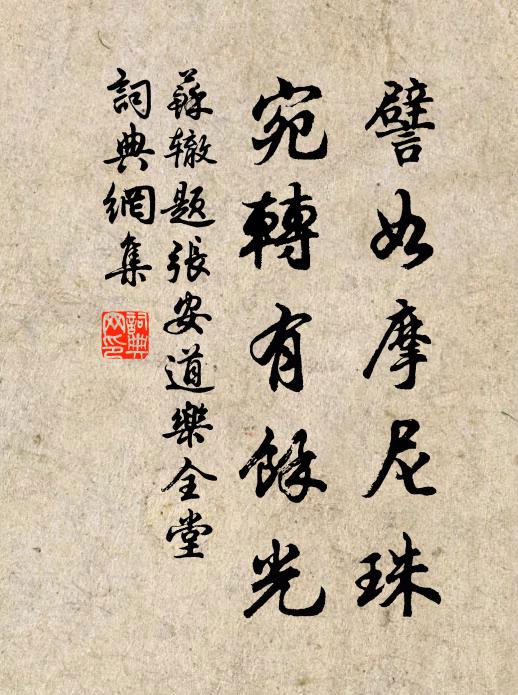 譬如摩尼珠
宛轉有餘光
蘇辙題張安道樂全堂
詞典網集
詞典
网印